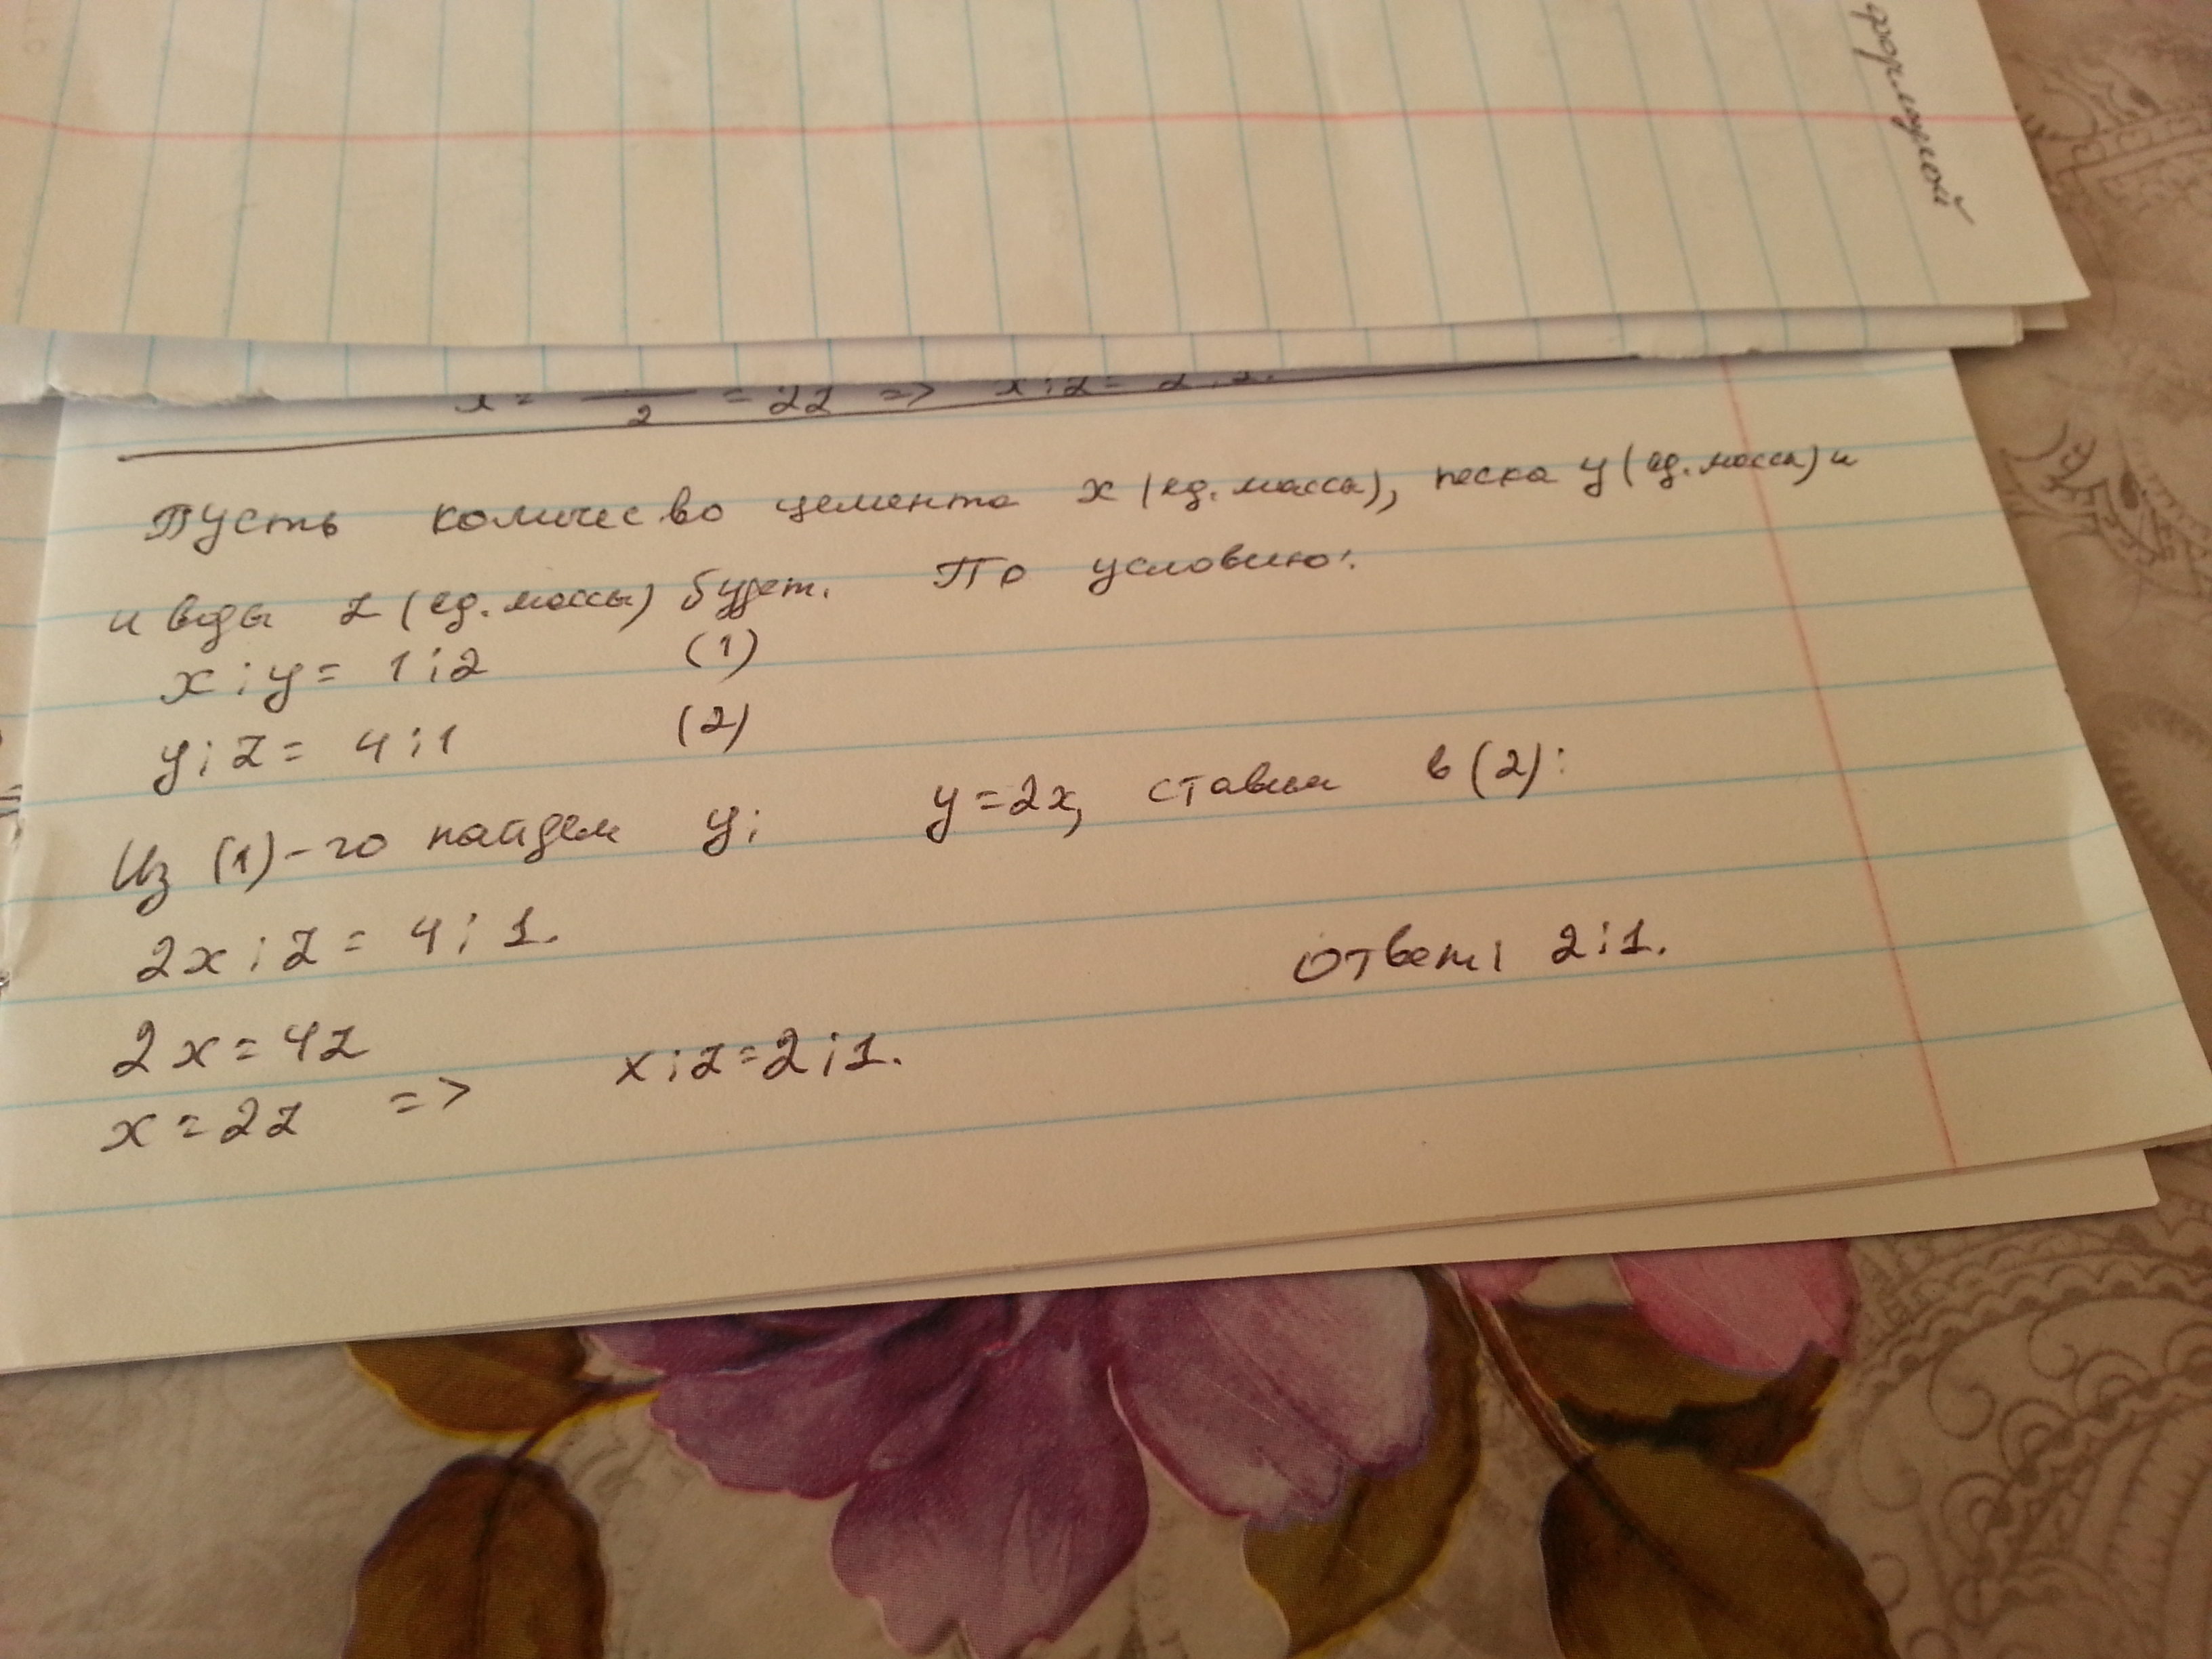 формулой
x = — 2 = 2z => x : z = 2 : 1.
Пусть количес во цемента x (ед. массы), песка y (ед. массы) и
и воды z (ед. массы) будет. По условию:
x : y = 1 : 2 (1)
y : z = 4 : 1 (2)
Из (1)-го найдем y: y = 2x, ставим в (2):
2x : z = 4 : 1.
Ответ: 2 : 1.
2x = 4z
x = 2z => x : z = 2 : 1.